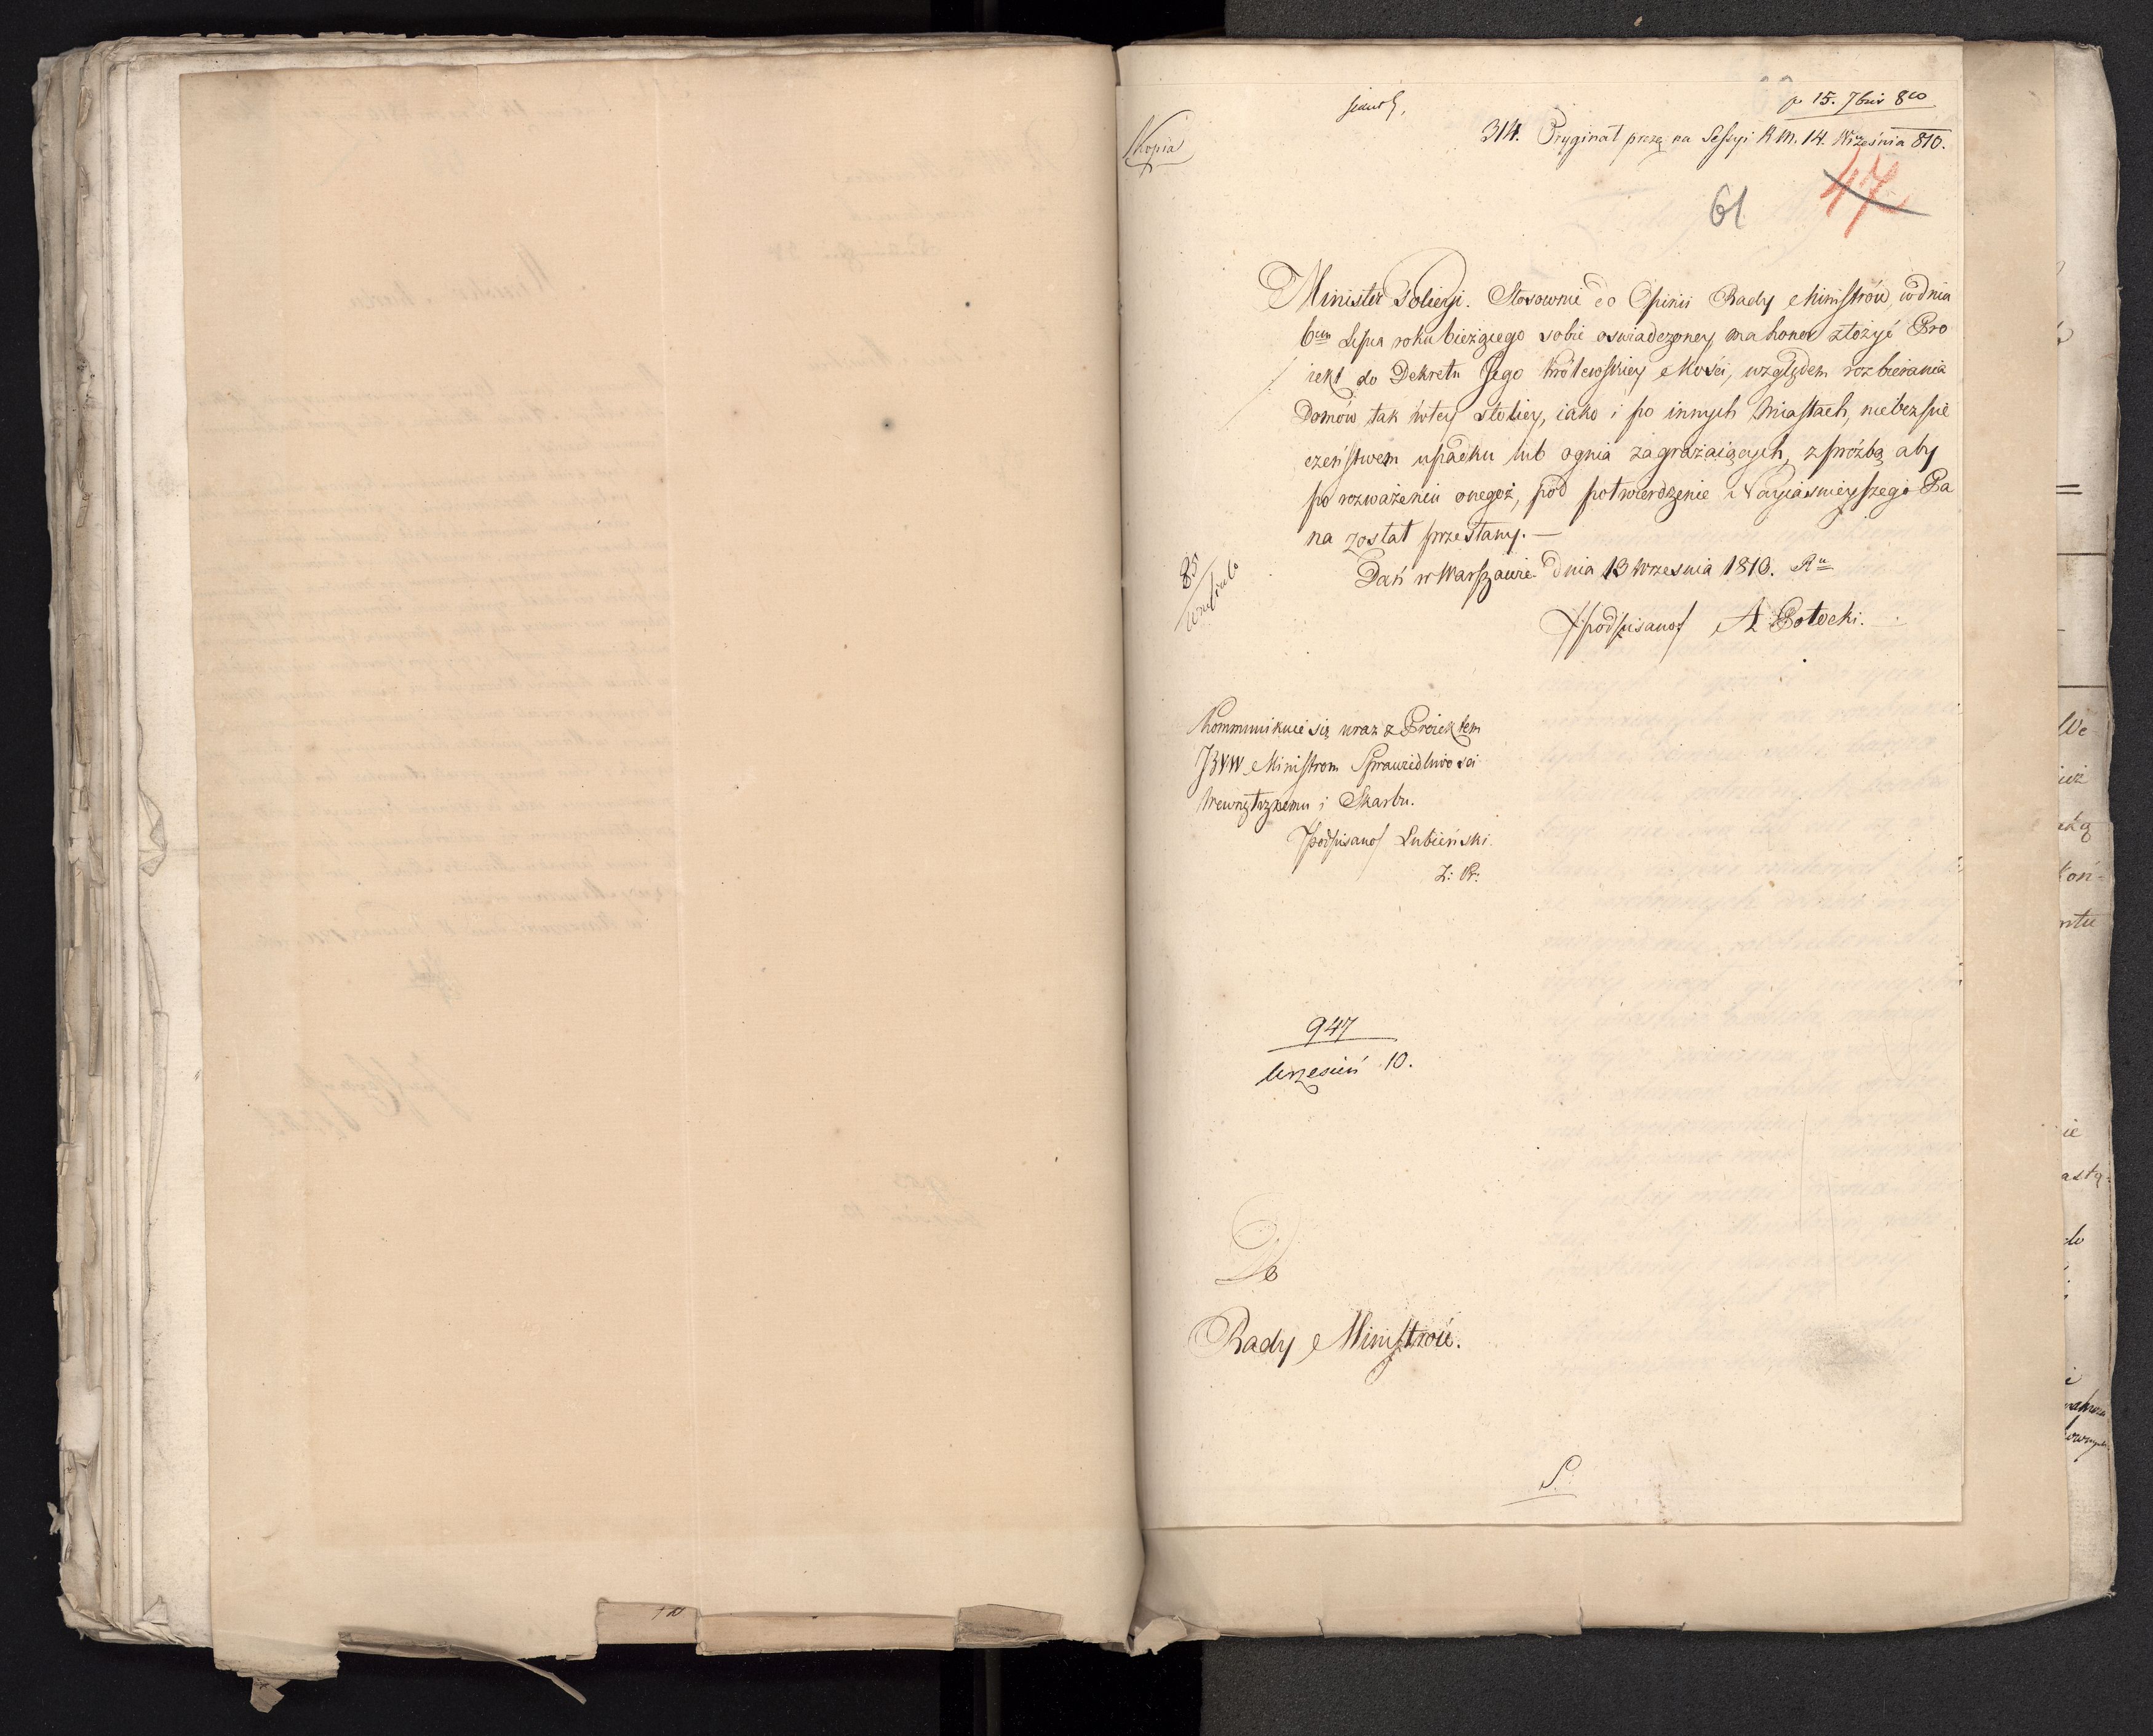 p. 15. 7bris 810
Kopia
314. Oryginał prze. na Sessyi R. M. 14. Września 810.
47
61
Minister Policyi. Stosownie do Opinii Rady Ministrów, w dnia
6em Lipca roku bieżącego sobie oswiadczoney ma honor złożyć Pro
iekt do Dekretu Jego Królewskiey Mości, względem rozbierania
Domów tak w tey stolicy, iako i po innych Miastach, niebezpie
czeństwem upadku lub ognia zagrażaiących, z prożbą aby
po rozważeniu onegoż, pod potwierdzenie Nayiasnieyszego Pa
na został przesłany. —
Dań w Warszawie dnia 13 Wrzesnia 1810. Ru
/podpisano/ A Potocki.
85
Kommunikuie się wraz z Proiektem
JWW Ministrom Sprawiedliwosci
Wewnętrznemu i Skarbu.
/podpisano/ Lubieński.
Z: P:
947
Wrzesień 10.
Do
Rady Ministrów.
S.